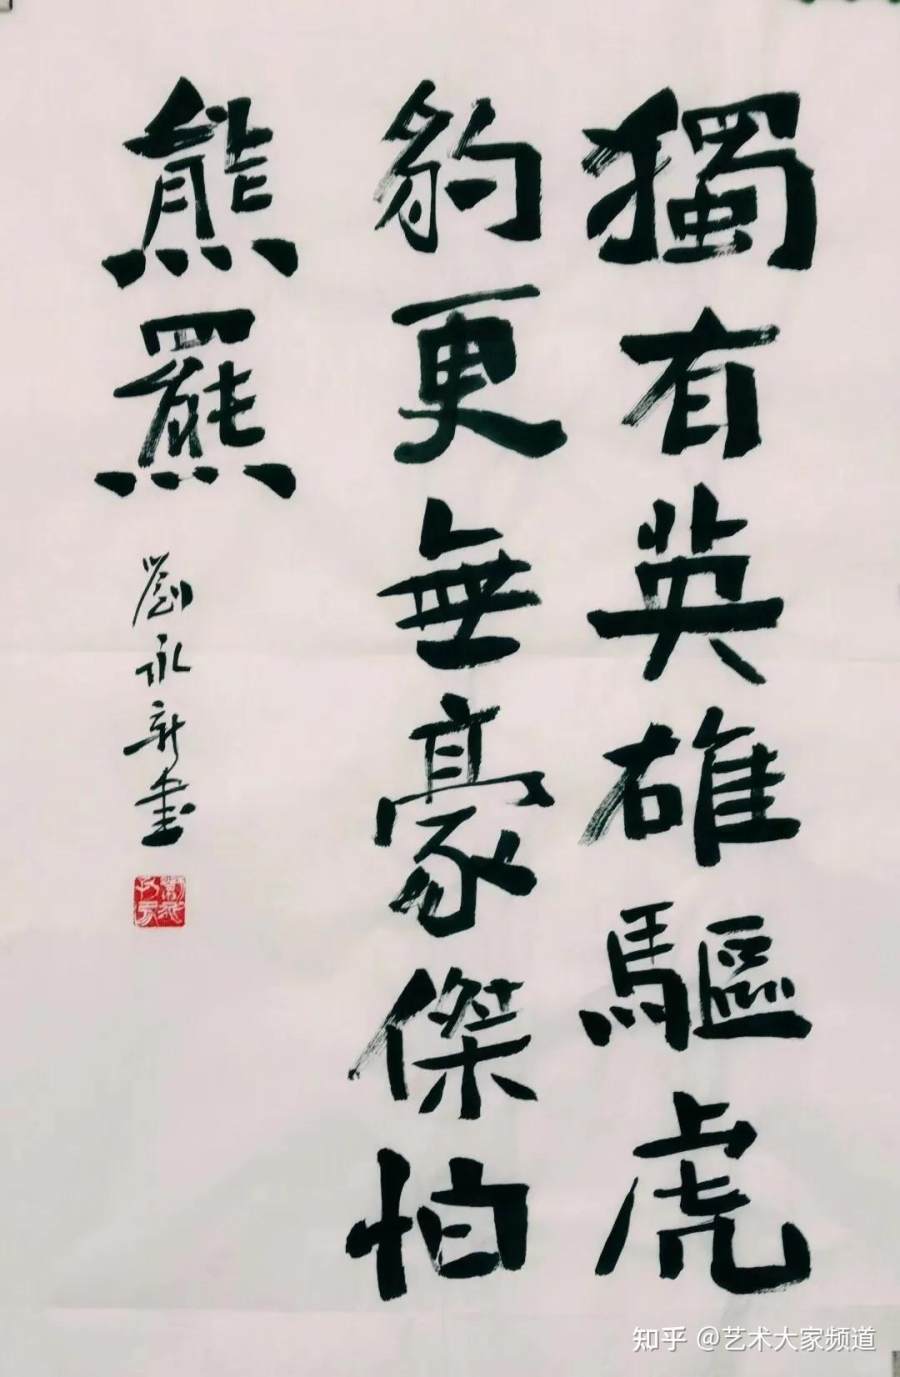 獨有英雄驅虎
豹更無豪傑怕
熊羆
劉永新書
知乎 @艺术大家频道